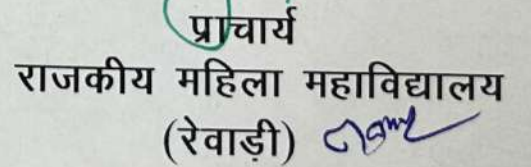 प्राचार्य
राजकीय महिला महाविद्यालय
(रेवाड़ी)